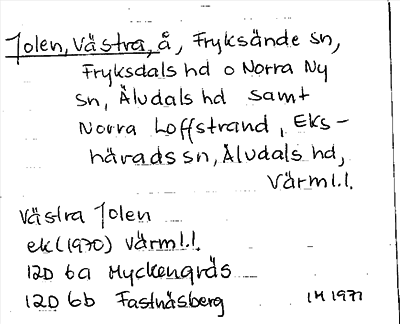 Jolen, Västra, å, Fryksände sn,
Fryksdals hd o Norra Ny
sn, Älvdals hd samt
Norra Loffstrand, Eks-
härads sn, Älvdals hd,
Värml.l.
Västra Jolen
ek (1970) Värml.l.
12D 6a Myckengräs
12D 6b Fastnäsberg
IH 1977